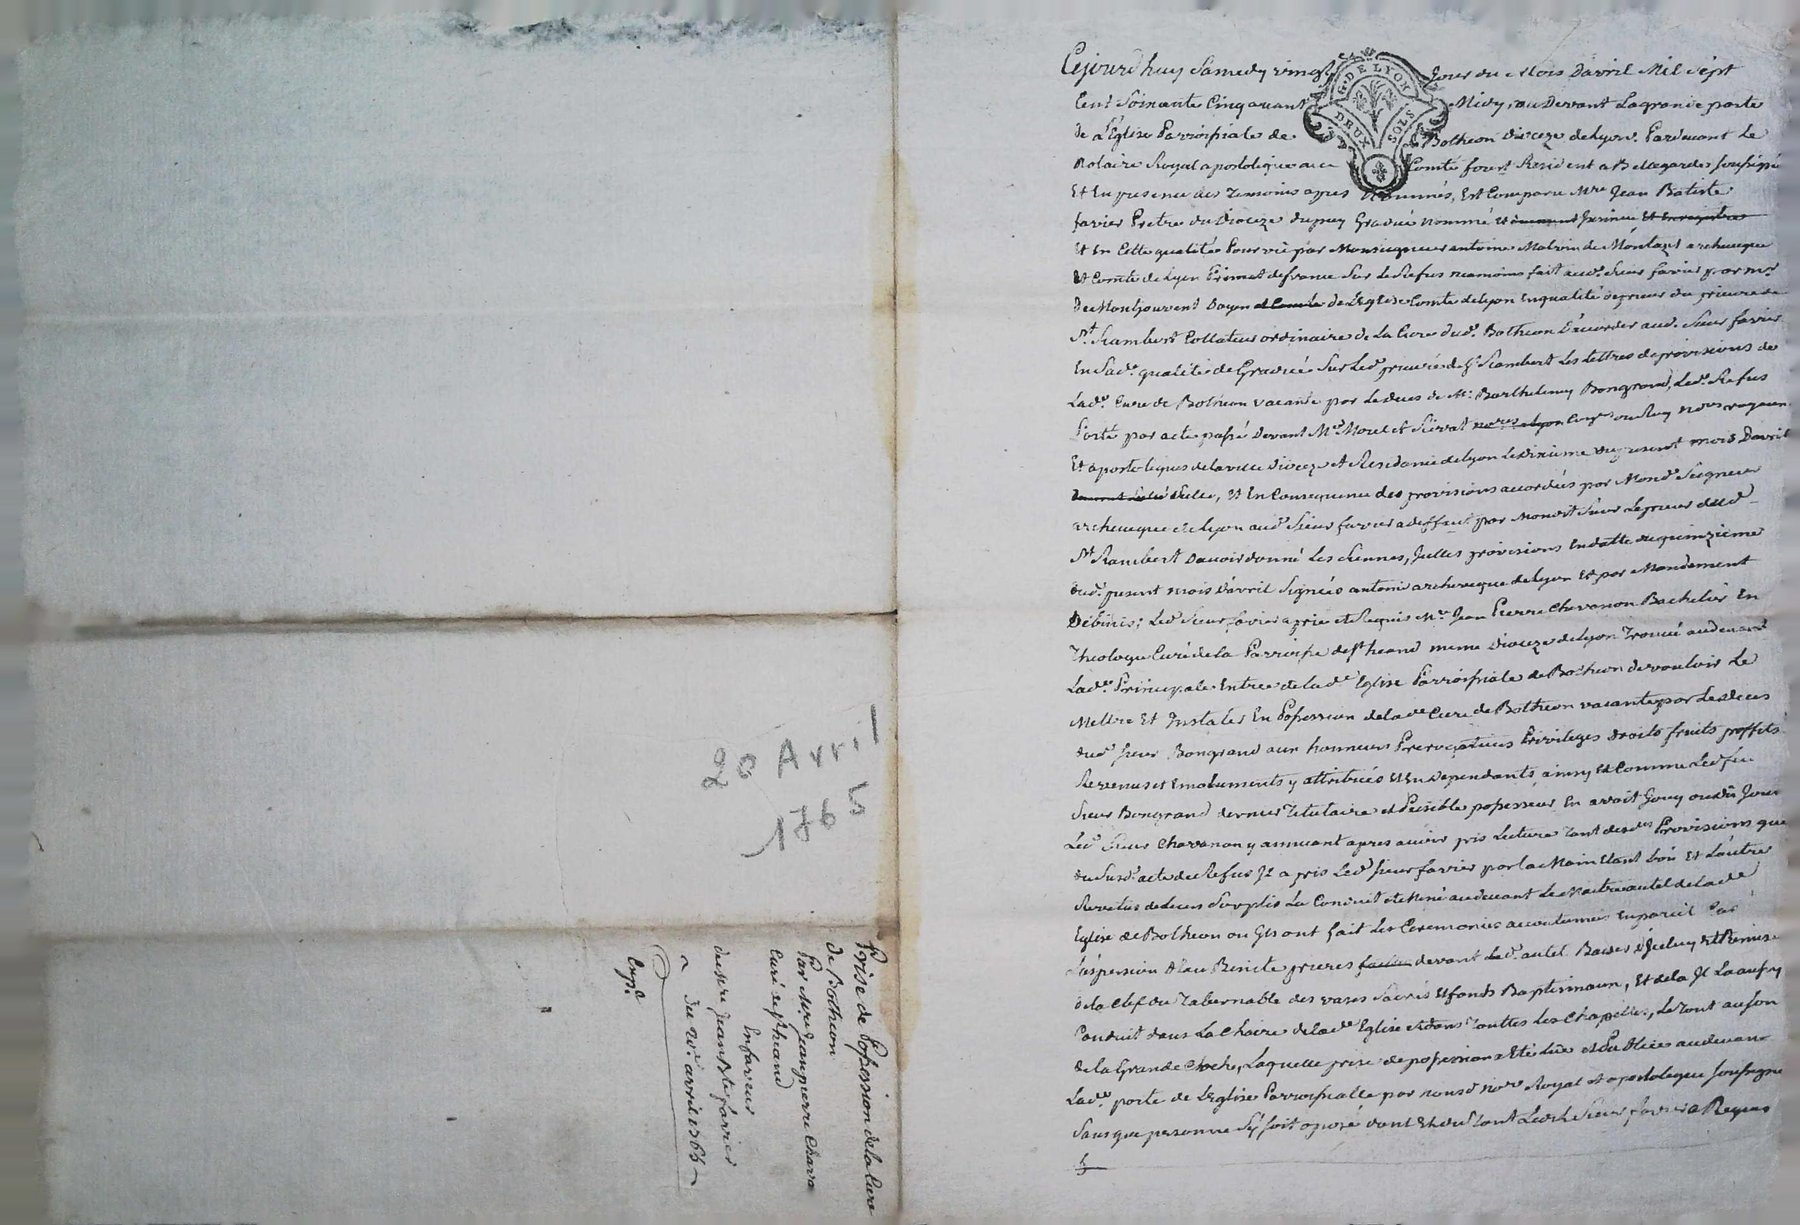 Cejourdhuy Samedy vingt jour du Mois Davril Mil Sept
Cent Soixante Cinq avant Midy, au Devant Lagrande porte
de L'Eglise Parroissiale de Botheon Dioceze de Lyon. Pardevant Le
Notaire Royal apostolique au Comté forest Resident a Bellegarde soussigné
Et En presence des Temoins apres Nommés, Est Comparu Mre Jean Batiste
favier Pretre du Dioceze Dupuy Gradué nommé
Et En Cette qualité Pourvû par Monseigneur antoine Malvin de Montazet archeveque
Et Comte de Lyon Primat de france Sur Le Refus neamoins fait aud. Sieur favier par Mr
De Montjouvent Doyen de L'Eglise Comte de Lyon En qualité de prieur du prieuré de
St. Rambert Collateur ordinaire de La Cure dud. Botheon D'accorder aud. Sieur favier
En Sad. qualité de Gradué Sur Led. prieuré de St Rambert Les Lettres de provisions de
Lad. Cure de Botheon vacante par Le deces de Mr. Barthelemy Bongrand, Led. Refus
Porté par acte passé Devant Mes Morel et Cons. du Roy nores royaux
Et apostoliques de la ville Dioceze et Residence de Lyon Le dixieme du present mois Davril
Et En Consequence des provisions accordées par Mond. Seigneur
archeveque de Lyon aud Sieur favier a deffaut par Mondit Sieur Le prieur dud
St Rambert D'avoir donné Les Siennes, Jcelles provisions En datte du quinzieme
dud. present mois D'avril Signées antoine archeveque de Lyon Et par Mandement
Debinis; Led Sieur favier a prié et Requis Mr. Jean Pierre Chavanon Bachelier En
Theologie Curé de La Parroisse de St heand meme Dioceze de Lyon Trouvé audevant
Lade. Principale Entrée de lade Eglise Parroissiale de Botheon de vouloir Le
Mettre Et Instaler En Possession de lade Cure de Botheon vacante par Le deces
dud Sieur Bongrand aux honneurs Prerogatives Privileges droits fruits proffits
Revenus et Emoluments y attribués Et En dependants ainsy Et Comme Led feu
Sieur Bongrand dernier Titulaire et Paisible possesseur En avoit Jouy ou du Jouir
Led Sieur Chavanon y annuant apres avoir pris Lecture Tant desdes Provisions que
du Susd. acte de Refus Jl a pris Led Sieur favier par la Main Etant L'un Et L'autre
Revetus de Leurs Surplis La Conduit et Mené audevant Le Maitre autel de lade
Eglise de Botheon ou Jls ont fait Les Ceremonies accoutumées En pareil Cas
L'aspersion d'Eau Benite prieres devant Led. autel Baiser d'Jceluy Et Remise
de la Clef du Tabernable des vases Sacrés Et fonds Baptismaux, Et de la Jl La aussy
Conduit dans La Chaire de lade Eglise et dans Touttes Les Chapelles, Le Tout au Son
de la Grande Cloche, Laquelle prise de possession a Eté Lüe et Publiée audevant
Lade. porte de L'Eglise Parroissialle par nousd nore Royal et apostolique soussigné
Sans que personne S'y Soit oposé dont Et du Tout Ledit Sieur favier a Requis
20 Avril
1765
Prise de Possession de la Cure
de Botheon
Par Mre Jean pierre Chava
Curé de St heand
En faveur
de Mre Jean Bte favier
Du 20e. avril 1765
Expé
G. DE LYON
DEUX SOLS